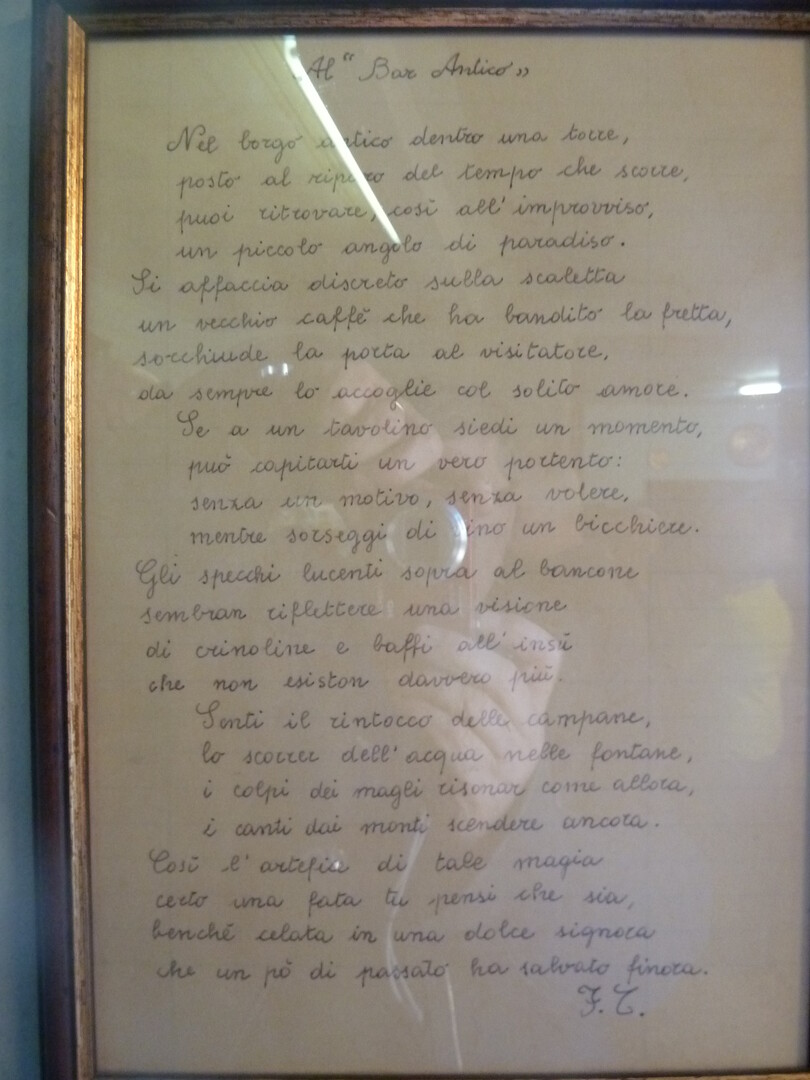 Al "Bar Antico"
Nel borgo antico dentro una torre,
posto al riparo del tempo che scorre,
puoi ritrovare, così all'improvviso,
un piccolo angolo di paradiso.
Si affaccia discreto sulla scaletta
un vecchio caffè che ha bandito la fretta,
socchiude la porta al visitatore,
da sempre lo accoglie col solito amore.
Se a un tavolino siedi un momento,
può capitarti un vero portento:
senza un motivo, senza volere,
mentre sorseggi di vino un bicchiere.
Gli specchi lucenti sopra al bancone
sembran riflettere una visione
di crinoline e baffi all'insù
che non esiston davvero più.
Senti il rintocco delle campane,
lo scorrer dell'acqua nelle fontane,
i colpi dei magli risonar come allora,
i canti dai monti scendere ancora.
Così l'artefia di tale magia
certo una fata tu pensi che sia,
benché celata in una dolce signora
che un pò di passato ha salvato finora.
F.T.